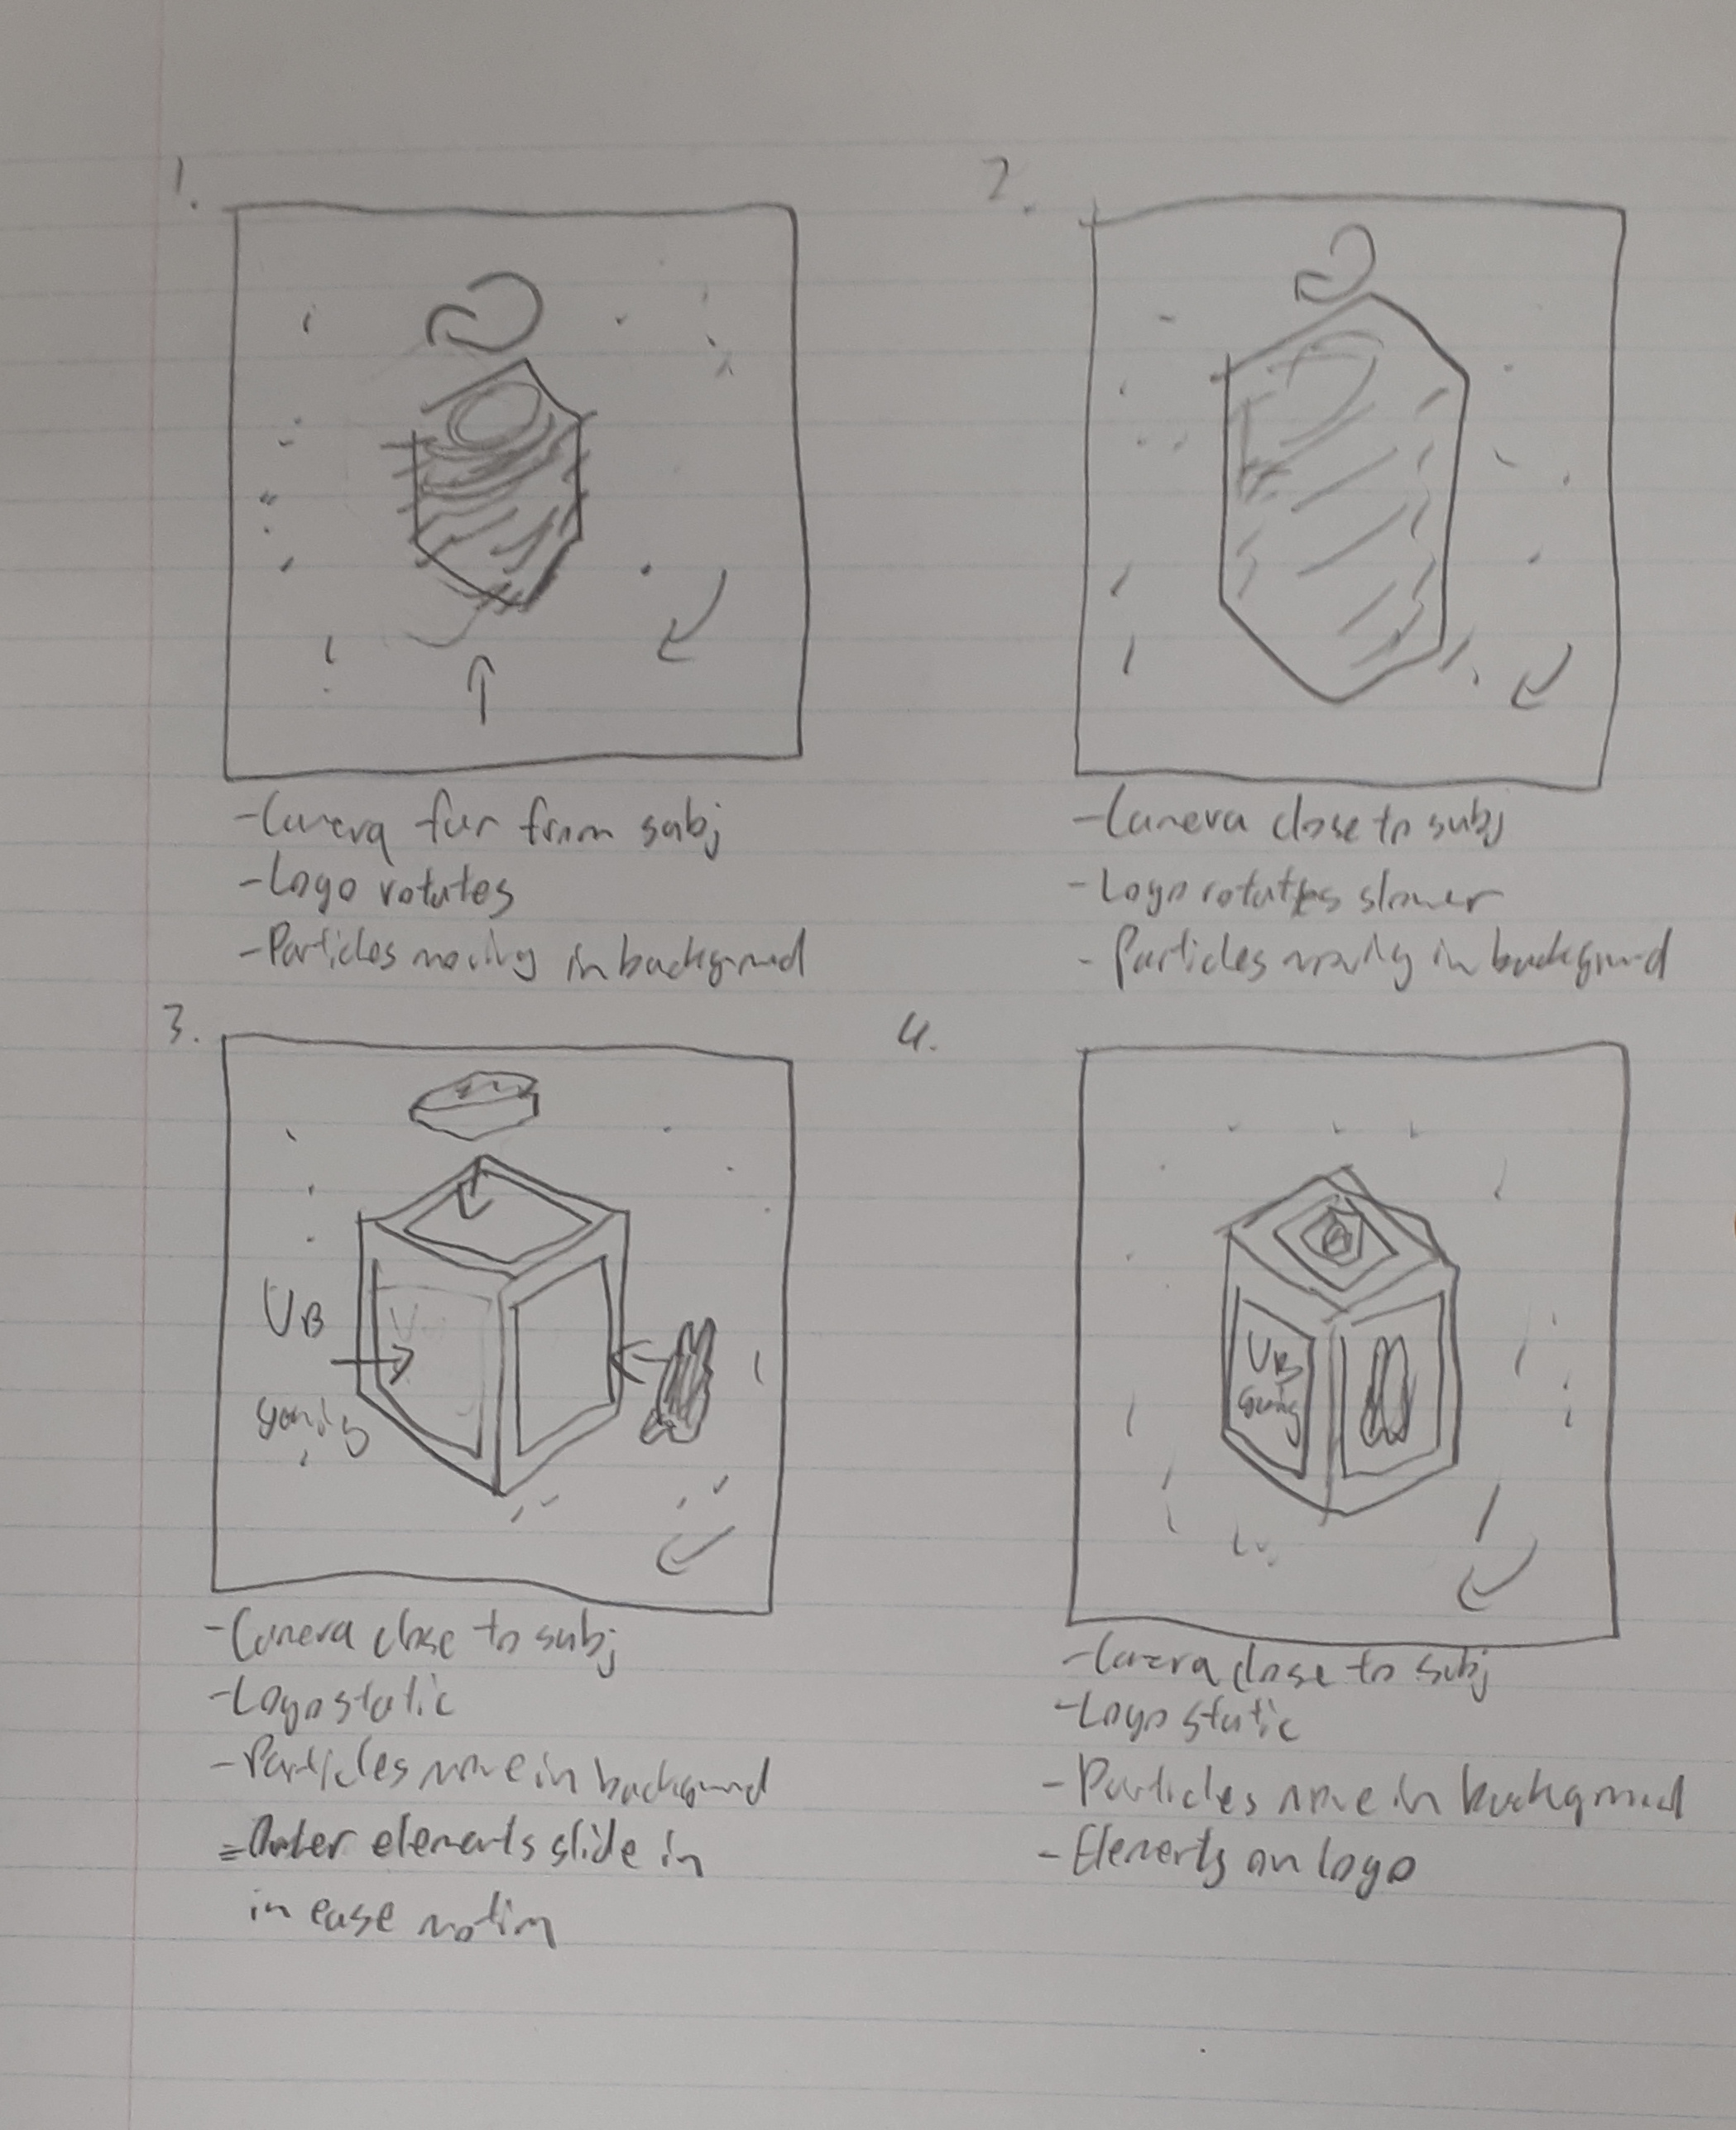 1.
2.
-Camera far from subj
-Logo rotates
-Particles moving in background
-Camera close to subj
-Logo rotates slower
-Particles moving in background
3.
UB
gaming
4.
UB
gaming
-Camera close to subj
-Logo static
-Particles move in background
-Outer elements slide in
in ease motion
-Camera close to subj
-Logo static
-Particles move in background
-Elements on logo